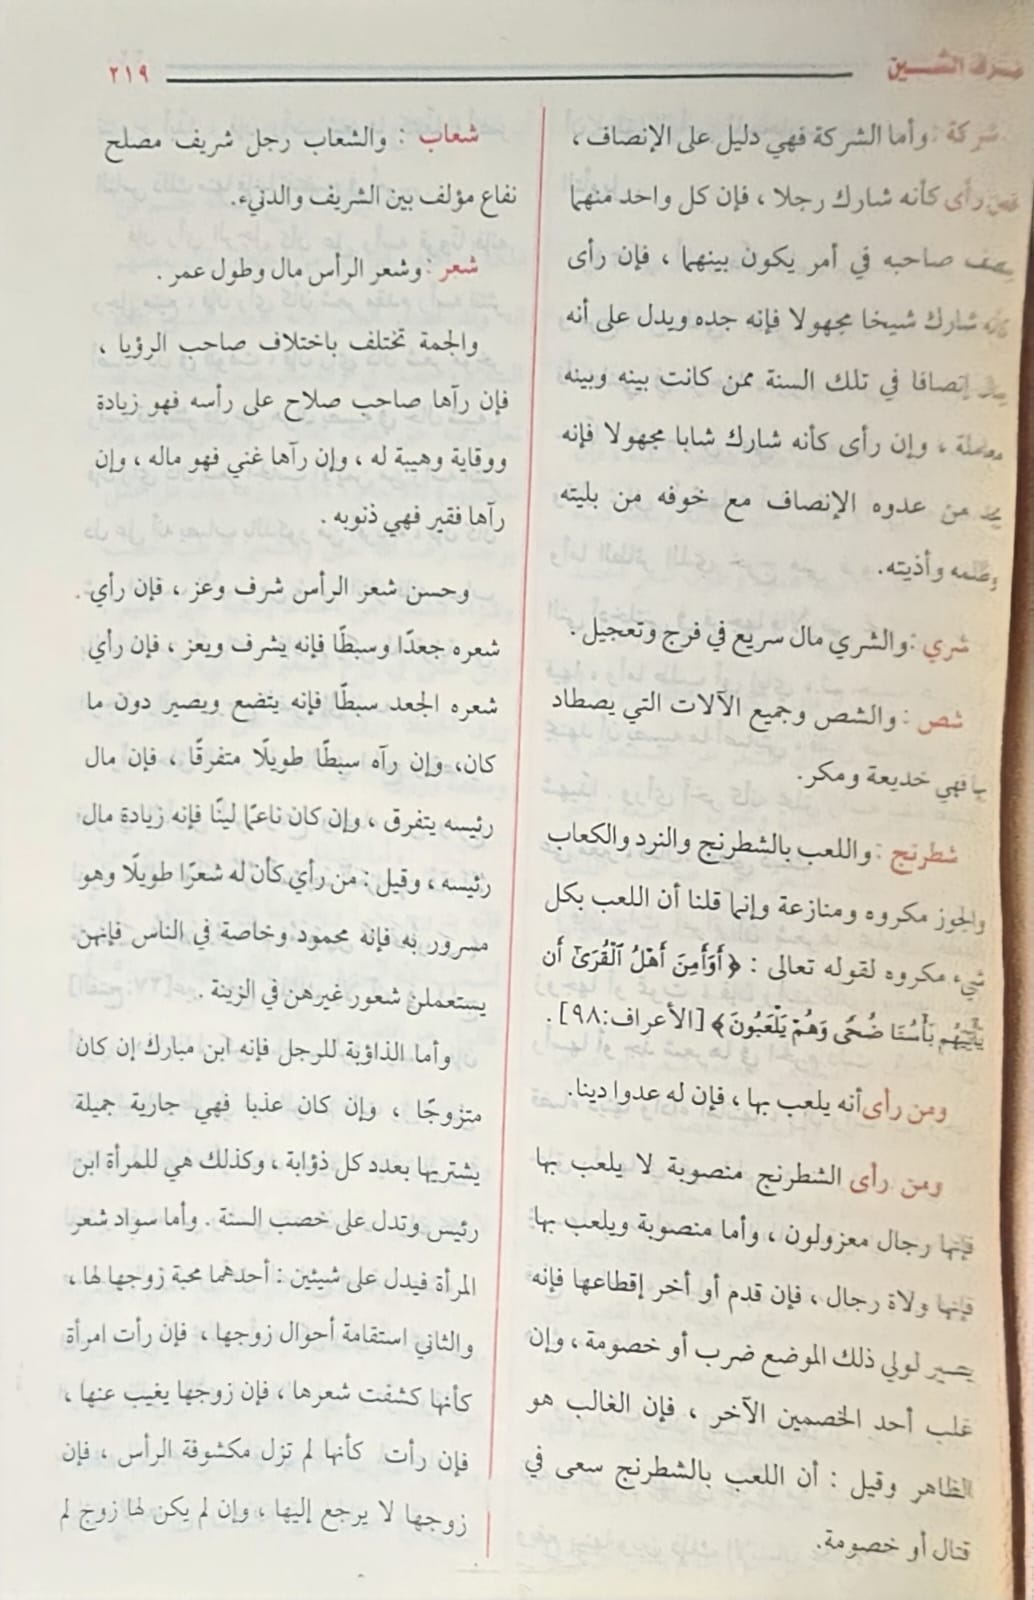 حرف الشين
٢١٩
شركة : وأما الشركة فهي دليل على الإنصاف ،
فمن رأى كأنه شارك رجلا ، فإن كل واحد منهما
ينصف صاحبه في أمر يكون بينهما ، فإن رأى
كأنه شارك شيخا مجهولا فإنه جده ويدل على أنه
ينال إنصافا في تلك السنة ممن كانت بينه وبينه
معاملة ، وإن رأى كأنه شارك شابا مجهولا فإنه
يجد من عدوه الإنصاف مع خوفه من بليته
وظلمه وأذيته.
شري : والشري مال سريع في فرج وتعجيل .
شص : والشص وجميع الآلات التي يصطاد
بها فهي خديعة ومكر.
شطرنج : واللعب بالشطرنج والنرد والكعاب
والجوز مكروه ومنازعة وإنما قلنا أن اللعب بكل
شيء مكروه لقوله تعالى : ﴿ أَوَأَمِنَ أَهْلُ ٱلْقُرَىٰٓ أَن
يَأْتِيَهُم بَأْسُنَا ضُحًى وَهُمْ يَلْعَبُونَ﴾ [الأعراف:٩٨] .
ومن رأى أنه يلعب بها ، فإن له عدوا دينا.
ومن رأى الشطرنج منصوبة لا يلعب بها
فإنها رجال معزولون ، وأما منصوبة ويلعب بها
فإنها ولاة رجال ، فإن قدم أو أخر إقطاعها فإنه
يصير لولي ذلك الموضع ضرب أو خصومة ، وإن
غلب أحد الخصمين الآخر ، فإن الغالب هو
الظاهر وقيل : أن اللعب بالشطرنج سعى في
قتال أو خصومة.
شعاب : والشعاب رجل شريف مصلح
نفاع مؤلف بين الشريف والدنيء.
شعر : وشعر الرأس مال وطول عمر .
والجمة تختلف باختلاف صاحب الرؤيا ،
فإن رآها صاحب صلاح على رأسه فهو زيادة
ووقاية وهيبة له ، وإن رآها غني فهو ماله ، وإن
رآها فقير فهي ذنوبه .
وحسن شعر الرأس شرف وعز ، فإن رأي
شعره جعدًا وسبطًا فإنه يشرف ويعز ، فإن رأي
شعره الجعد سبطًا فإنه يتضع ويصير دون ما
كان، وإن رآه سبطًا طويلًا متفرقًا ، فإن مال
رئيسه يتفرق ، وإن كان ناعمًا لينًا فإنه زيادة مال
رئيسه ، وقيل : من رأي كأن له شعرًا طويلًا وهو
مسرور به فإنه محمود وخاصة في الناس فإنهن
يستعملن شعور غيرهن في الزينة .
وأما الذاؤبة للرجل فإنه ابن مبارك إن كان
متزوجًا ، وإن كان عذبا فهي جارية جميلة
يشتريها بعدد كل ذؤابة ، وكذلك هي للمرأة ابن
رئيس وتدل على خصب السنة . وأما سواد شعر
المرأة فيدل على شيئين : أحدهما محبة زوجها لها ،
والثاني استقامة أحوال زوجها ، فإن رأت امرأة
كأنها كشفت شعرها ، فإن زوجها يغيب عنها ،
فإن رأت كأنها لم تزل مكشوفة الرأس ، فإن
زوجها لا يرجع إليها ، وإن لم يكن لها زوج لم